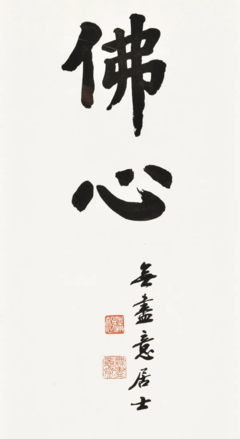 佛心
無盡意居士